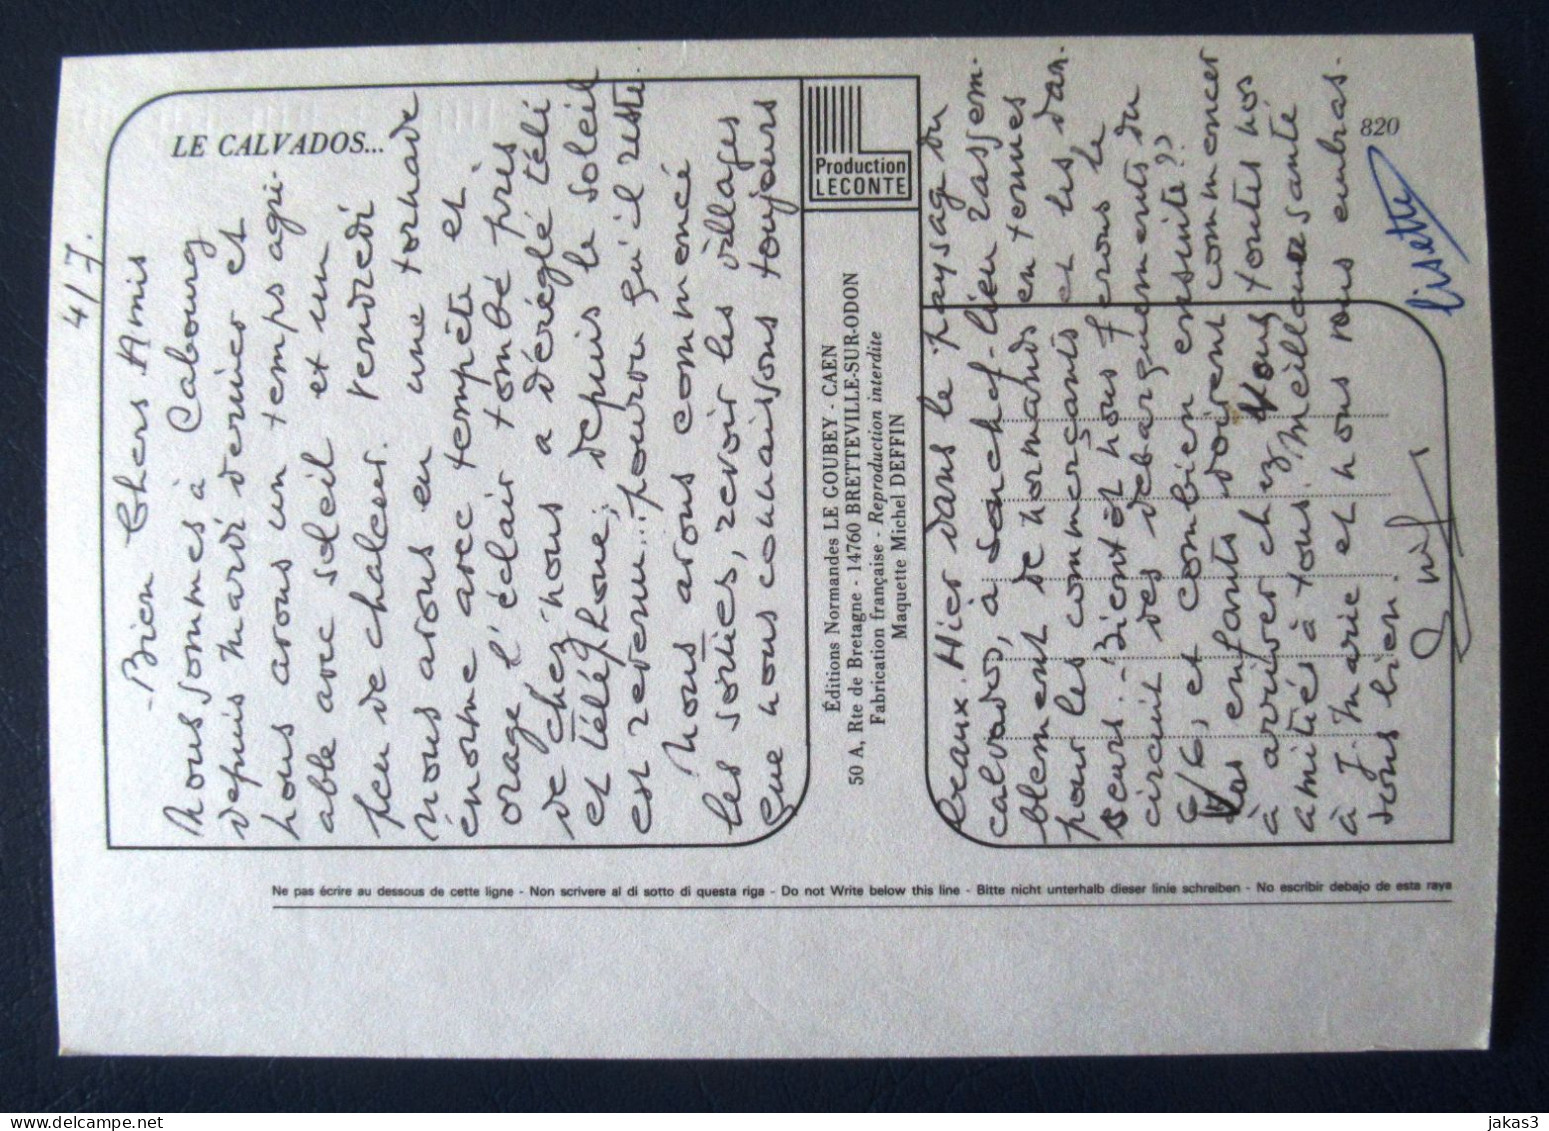 4/7.
- Bien Chers Amis
Nous sommes à Cabourg
depuis mardi dernier et
nous avons un temps agré-
able avec soleil et un
peu de chaleur. Vendredi
nous avons eu une tornade
énorme avec tempête et
orage l'éclair tombé près
de chez nous a déréglé téli
et téléphone; depuis le soleil
est revenu... pourvu qu'il reste.
Nous avons commencé
les sorties, revoir les villages
que nous connaissons toujours
beaux. Hier dans le paysage du
calvados, à sanchef-lieu rassem-
blement de normands en tenues
pour les commerçants et les dan-
seurs. - Bientôt nous ferons le
circuit des débarquements du
6/6, et combien ensuite??
Vos enfants doivent commencer
à arriver chez Vous toutes nos
amitiés à tous. Meilleure santé
à J. Marie et nous vous embras-
sons bien.
lisette
LE CALVADOS...
Production
LECONTE
820
Éditions Normandes LE GOUBEY - CAEN
50 A, Rte de Bretagne - 14760 BRETTEVILLE-SUR-ODON
Fabrication française - Reproduction interdite
Maquette Michel DEFFIN
Ne pas écrire au dessous de cette ligne - Non scrivere al di sotto di questa riga - Do not Write below this line - Bitte nicht unterhalb dieser linie schreiben - No escribir debajo de esta raya
www.delcampe.net
jakas3